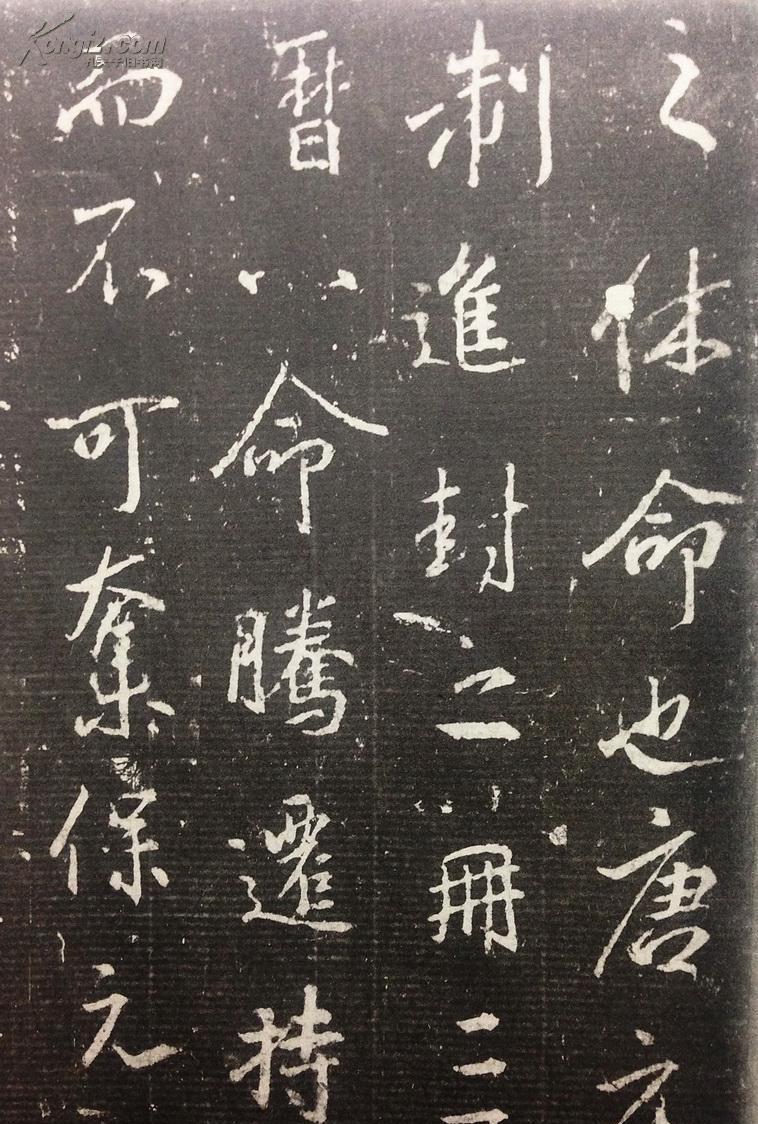 之休命也唐
制進封二冊三
曆八命騰遷持
而不可奪保元
Kongfz.com
孔夫子旧书网